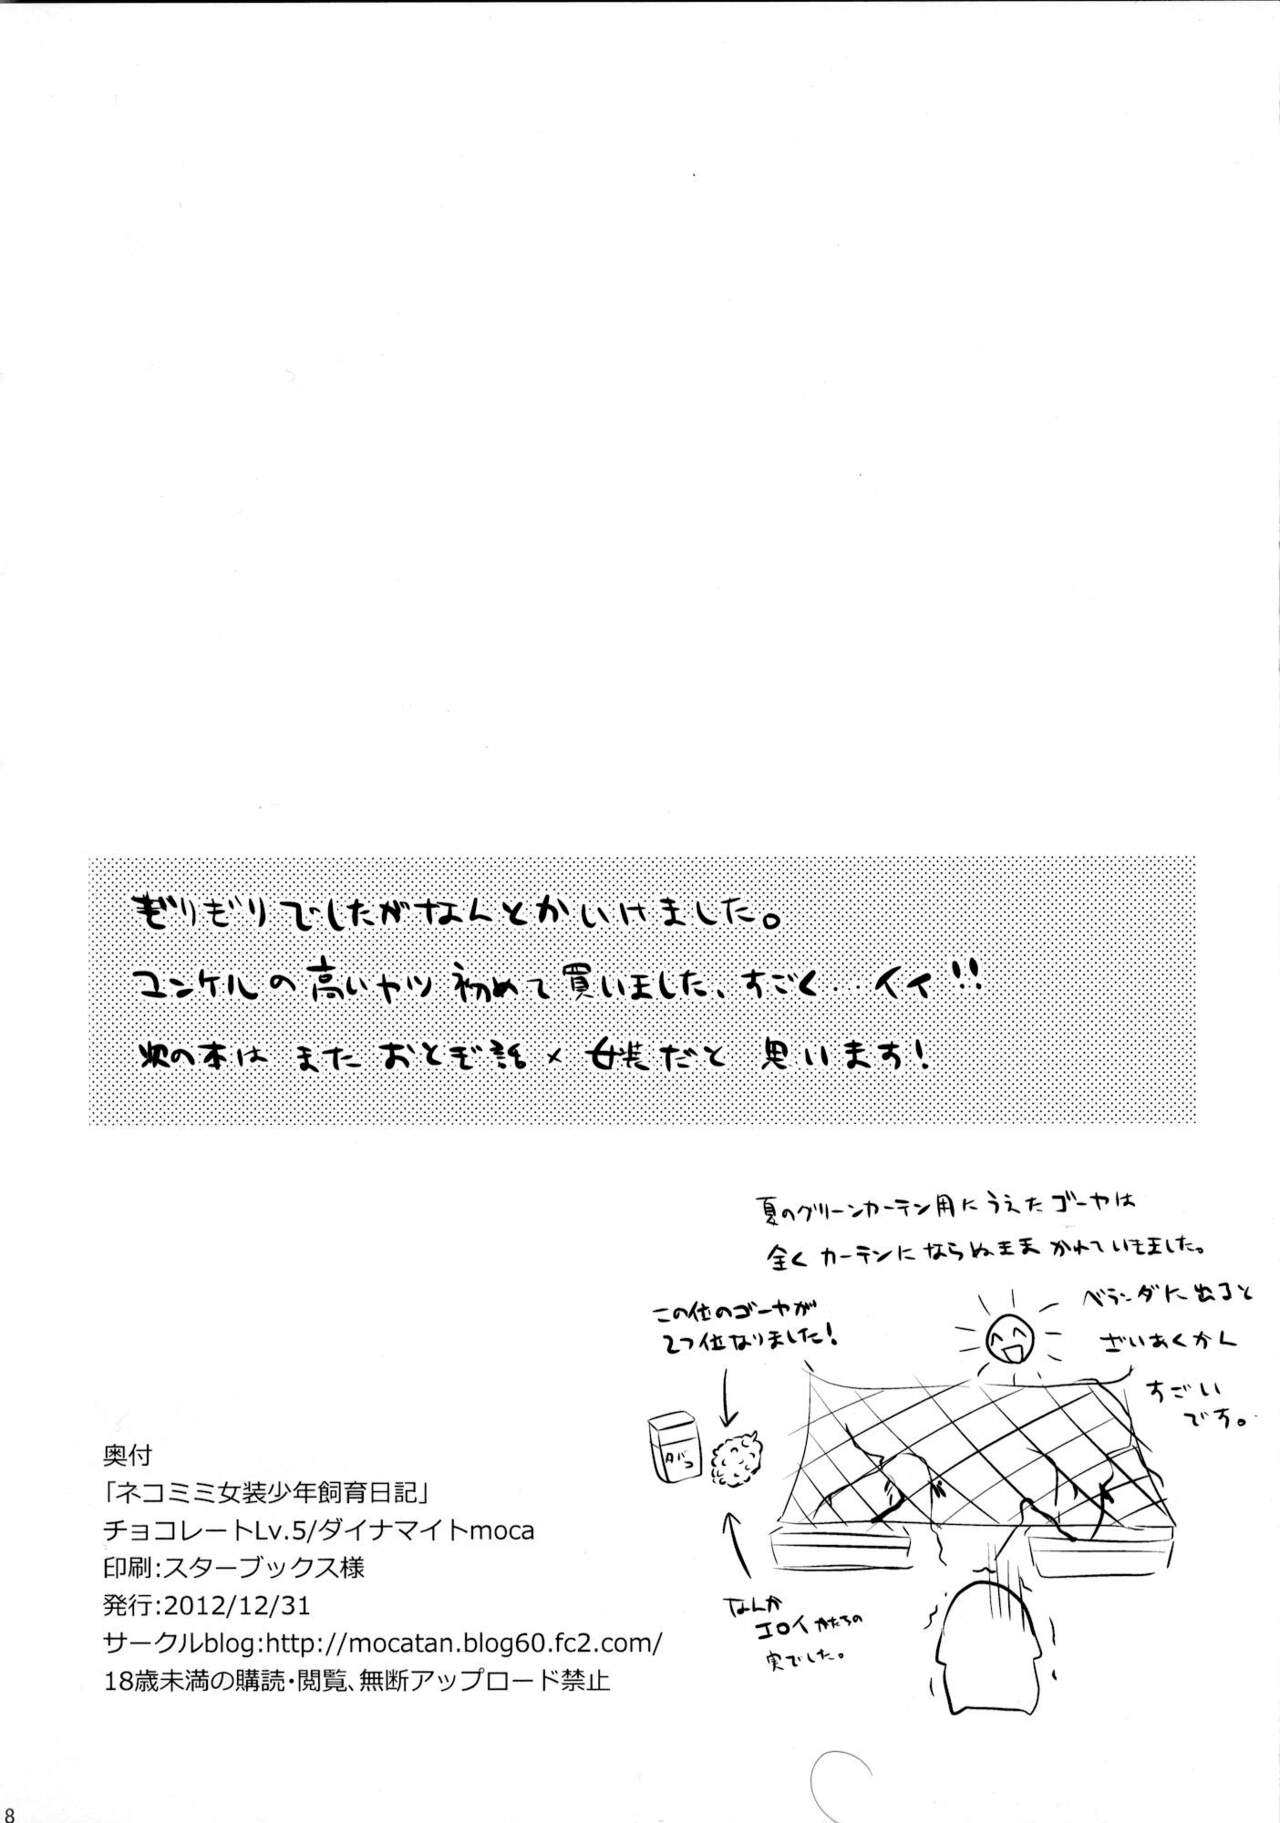 ぎりぎりでしたがなんとかいけました。
ユンケルの高いヤツ初めて買いました、すごく…イイ!!
次の本は また おとぎ話×女装だと 思います!
夏のグリーンカーテン用にうえたゴーヤは
全くカーテンにならぬままかれていきました。
ベランダに出ると
ざいあくかん
すごい
です。
この位のゴーヤが
2つ位なりました!
タバコ
なんか
エロイかたちの
実でした。
奥付
「ネコミミ女装少年飼育日記」
チョコレートLv.5/ダイナマイトmoca
印刷:スターブックス様
発行:2012/12/31
サークルblog:http://mocatan.blog60.fc2.com/
18歳未満の購読・閲覧、無断アップロード禁止
8